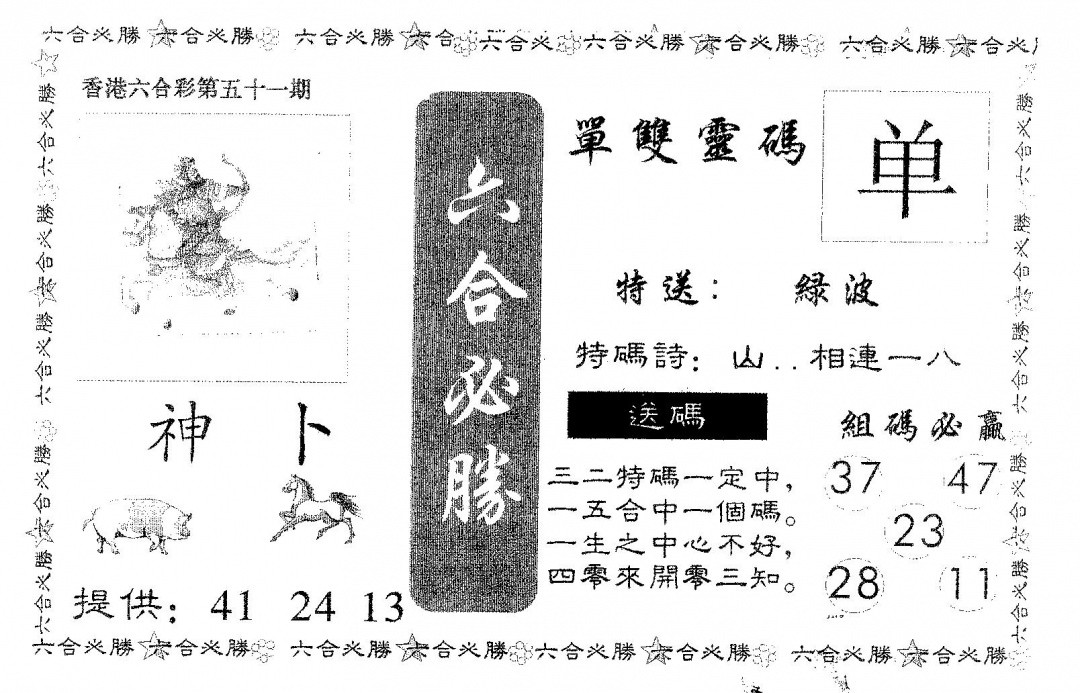 六合必勝 六合必勝 六合必勝 六合 六合必 六合必勝 六合必勝 六合必勝 六合必
六合必勝 六合必勝 六合必勝 六合必勝 六合必勝
香港六合彩第五十一期
神 卜
提供: 41 24 13
六合必勝
單雙靈碼
单
特送: 緑波
特碼詩: 山..相連一八
送碼
三二特碼一定中,
一五合中一個碼。
一生之中心不好,
四零來開零三知。
組碼必贏
37 47
23
28 11
六合必勝 六合必勝 六合必勝 六合必勝 六合必勝
六合必勝 六合必勝 六合必勝 六合必勝 六合必勝 六合必勝 六合必勝 六合必勝